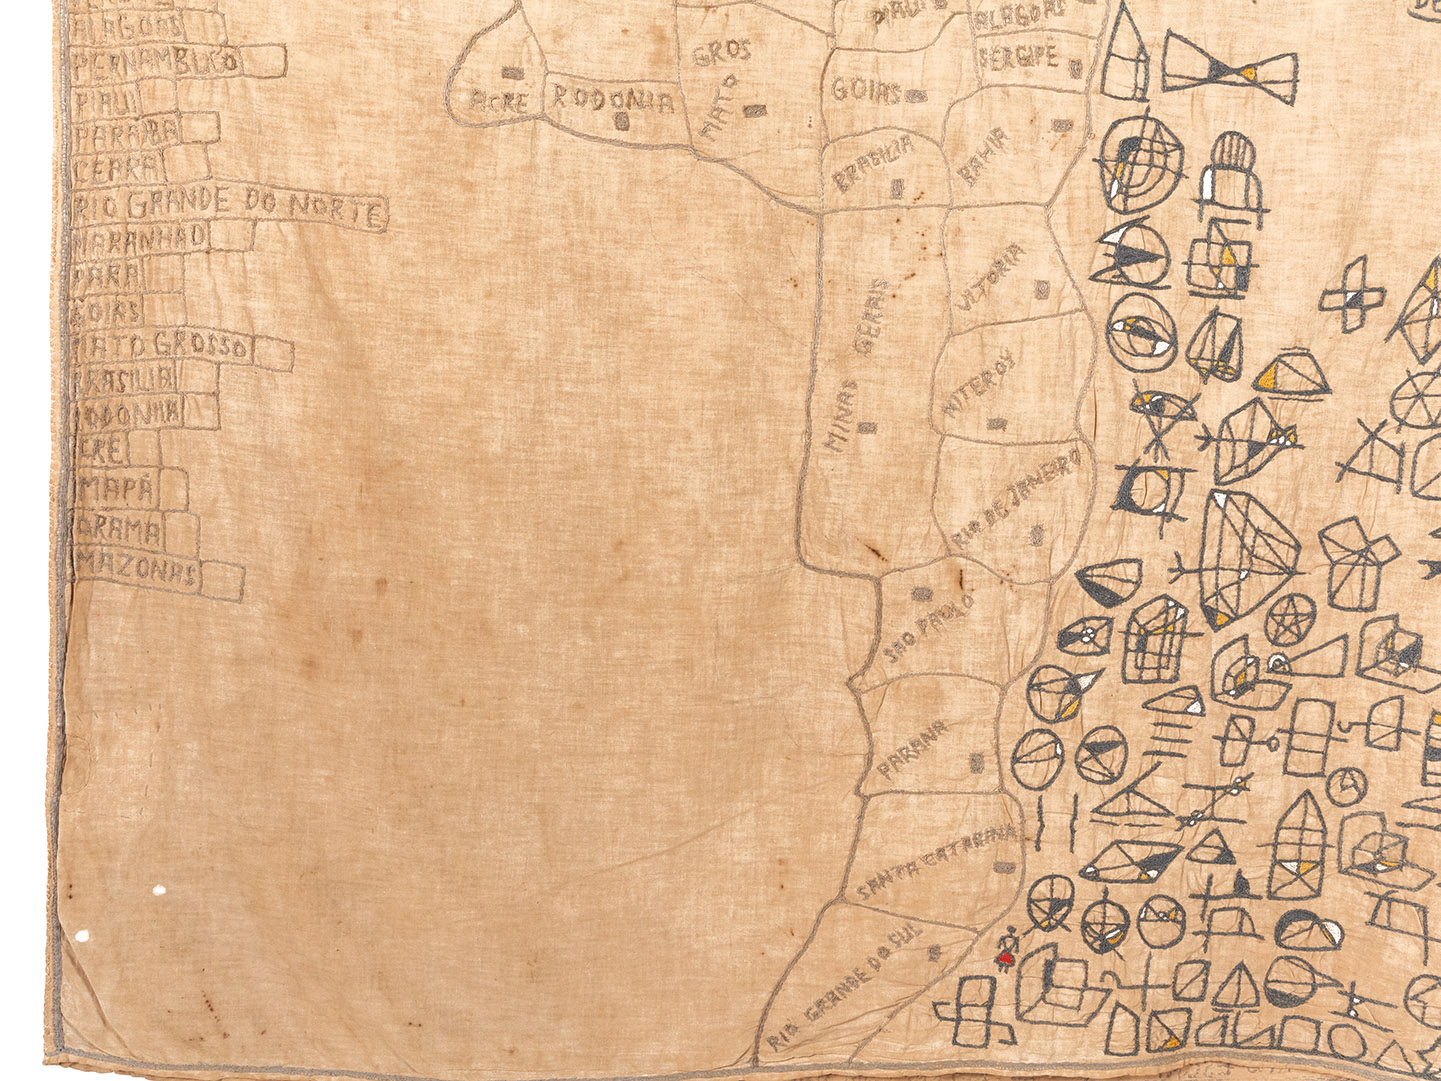 ALAGOAS
PERNAMBUCO
PIAUI
PARAIBA
CEARA
RIO GRANDE DO NORTE
MARANHAO
PARA
GOIAS
MATO GROSSO
BRASILIA
RODONIA
ACRE
AMAPÁ
ORAMA
AMAZONAS
PIAUI
ALAGOAS
SERGIPE
GROS
MATO
GOIAS
ACRE
RODONIA
BRASILIA
BAHIA
VITORIA
MINAS GERAIS
NITEROY
RIO DE JANEIRO
SAO PAOLO
PARANA
SANTA CATARINA
RIO GRANDE DO SUL